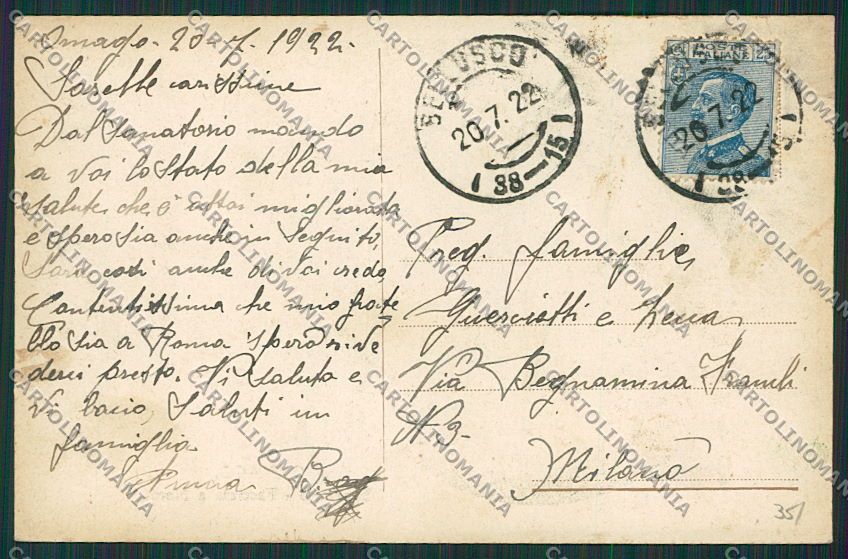 Imago. 20-7-1922.
Sorelle carissime
Dal Sanatorio mando
a Voi lo Stato della mia
Salute che è assai migliorata
e spero sia anche in Seguito,
Sarà così anche di Voi credo,
Contentissima che mio frate
llo sia a Roma spero rive
dervi presto. Vi saluto e
Vi bacio, Saluti in
famiglia
BELLUSCO
20.7.22
38-15
POSTE ITALIANE
20.7.22
38-15
Preg. famiglie
Guerciotti e
Via Begnamina
N 3-
Milano
35/
CARTOLINOMANIA